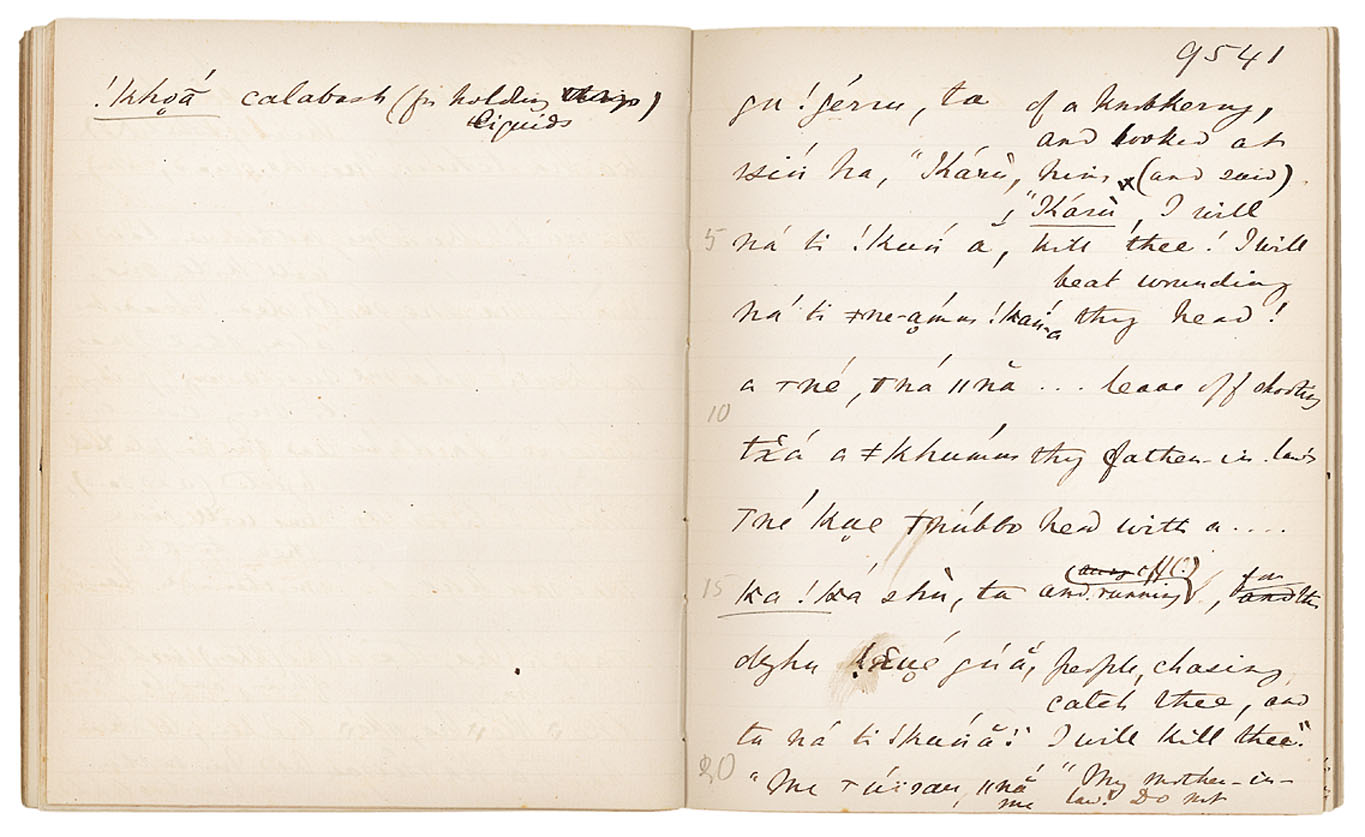 !khọā́ calabash (for holding things)
liquids
9541
gu !gérru, ta of a knobkerry,
and looked at
ssiń ha, "Ikárù, him × (and said)
"Ikárù, I will
5 ná ti !kuń ā, kill thee! I will
beat wounding
ná ti ǂne-ạ́mm !kań-a thy head!
a ǀné, ná ǁnă ... leave off shooting
10
tx̆á a ǂkhumúm thy father-in-law's
ǀné kụe ǀnúbbo head with a ....
15 ka !ká shù, ta and running, for the
dzhu !xụé gúă, people, chasing
catch thee, and
ta ná ti !kuńă!" I will kill thee."
20 "Me ǀúïsau, ǁnă "My mother-in-
me law! Do not